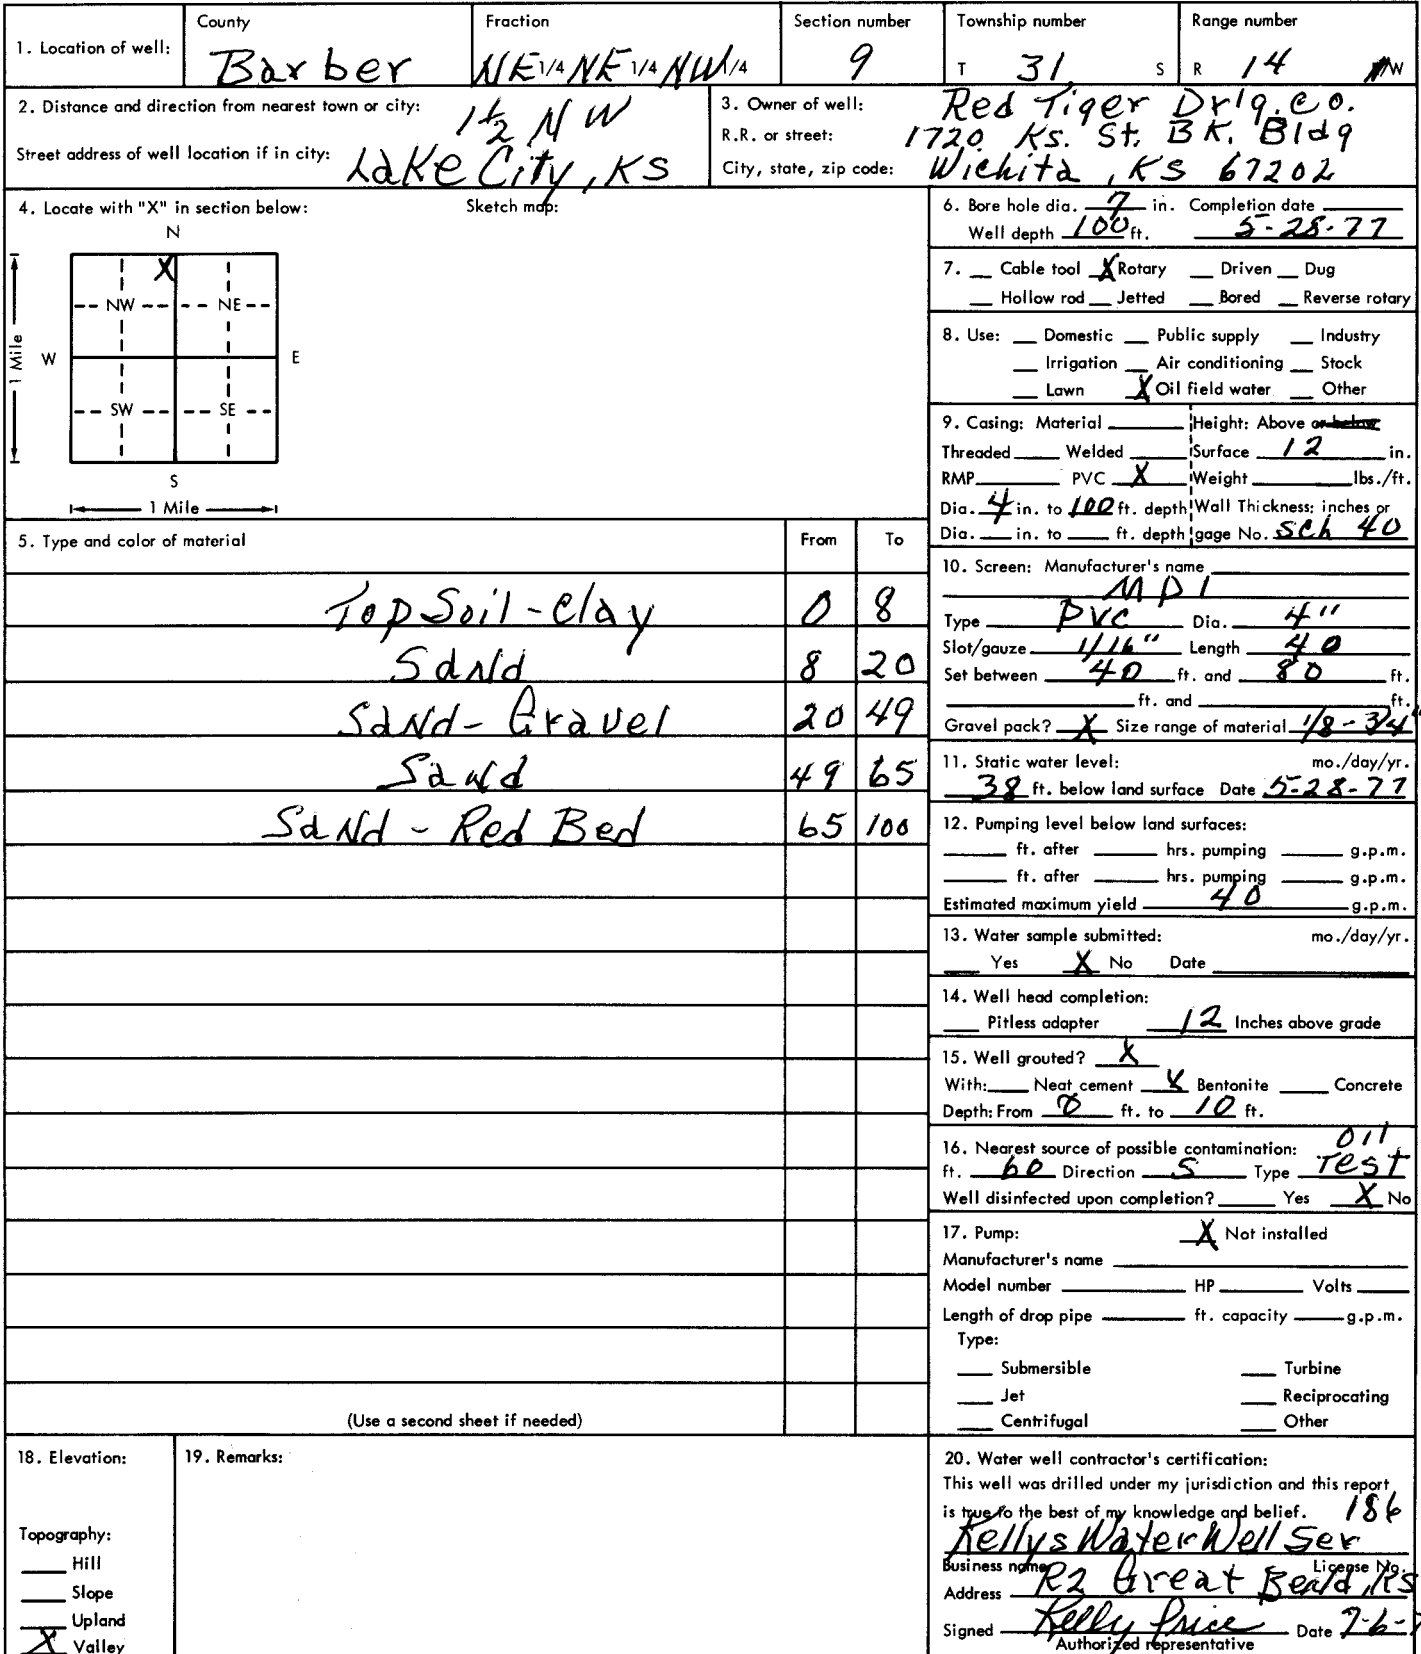 1. Location of well:
County
Barber
Fraction
NE 1/4 NE 1/4 NW 1/4
Section number
9
Township number
T 31 S
Range number
R 14 W
2. Distance and direction from nearest town or city: 1½ NW
Street address of well location if in city: Lake City, KS
3. Owner of well: Red Tiger Drlg. Co.
R.R. or street: 1720 Ks. St. BK. Bldg
City, state, zip code: Wichita, KS 67202
4. Locate with "X" in section below:
Sketch map:
N
X
NW NE
W E
1 Mile
SW SE
S
1 Mile
5. Type and color of material From To
Top Soil - Clay 0 8
Sand 8 20
Sand - Gravel 20 49
Sand 49 65
Sand - Red Bed 65 100
(Use a second sheet if needed)
6. Bore hole dia. 7 in. Completion date
Well depth 100 ft. 5-28-77
7. __ Cable tool X Rotary __ Driven __ Dug
__ Hollow rod __ Jetted __ Bored __ Reverse rotary
8. Use: __ Domestic __ Public supply __ Industry
__ Irrigation __ Air conditioning __ Stock
__ Lawn X Oil field water __ Other
9. Casing: Material ____ Height: Above or below
Threaded ____ Welded ____ Surface 12 in.
RMP ____ PVC X Weight ____ lbs./ft.
Dia. 4 in. to 100 ft. depth Wall Thickness: inches or
Dia. __ in. to __ ft. depth gage No. Sch 40
10. Screen: Manufacturer's name
MPI
Type PVC Dia. 4"
Slot/gauze 1/16" Length 40
Set between 40 ft. and 80 ft.
____ ft. and ____ ft.
Gravel pack? X Size range of material 1/8 - 3/4"
11. Static water level: mo./day/yr.
38 ft. below land surface Date 5-28-77
12. Pumping level below land surfaces:
____ ft. after ____ hrs. pumping ____ g.p.m.
____ ft. after ____ hrs. pumping ____ g.p.m.
Estimated maximum yield 40 g.p.m.
13. Water sample submitted: mo./day/yr.
__ Yes X No Date ____
14. Well head completion:
__ Pitless adapter 12 Inches above grade
15. Well grouted? X
With: __ Neat cement X Bentonite __ Concrete
Depth: From 0 ft. to 10 ft.
16. Nearest source of possible contamination: Oil
ft. 60 Direction S Type Test
Well disinfected upon completion? __ Yes X No
17. Pump: X Not installed
Manufacturer's name ____
Model number ____ HP ____ Volts ____
Length of drop pipe ____ ft. capacity ____ g.p.m.
Type:
__ Submersible __ Turbine
__ Jet __ Reciprocating
__ Centrifugal __ Other
18. Elevation:
Topography:
__ Hill
__ Slope
__ Upland
X Valley
19. Remarks:
20. Water well contractor's certification:
This well was drilled under my jurisdiction and this report
is true to the best of my knowledge and belief. 186
Kellys Water Well Ser
Business name License No.
Address R2 Great Bend, KS
Signed Kelly Price Date 7-6-
Authorized representative